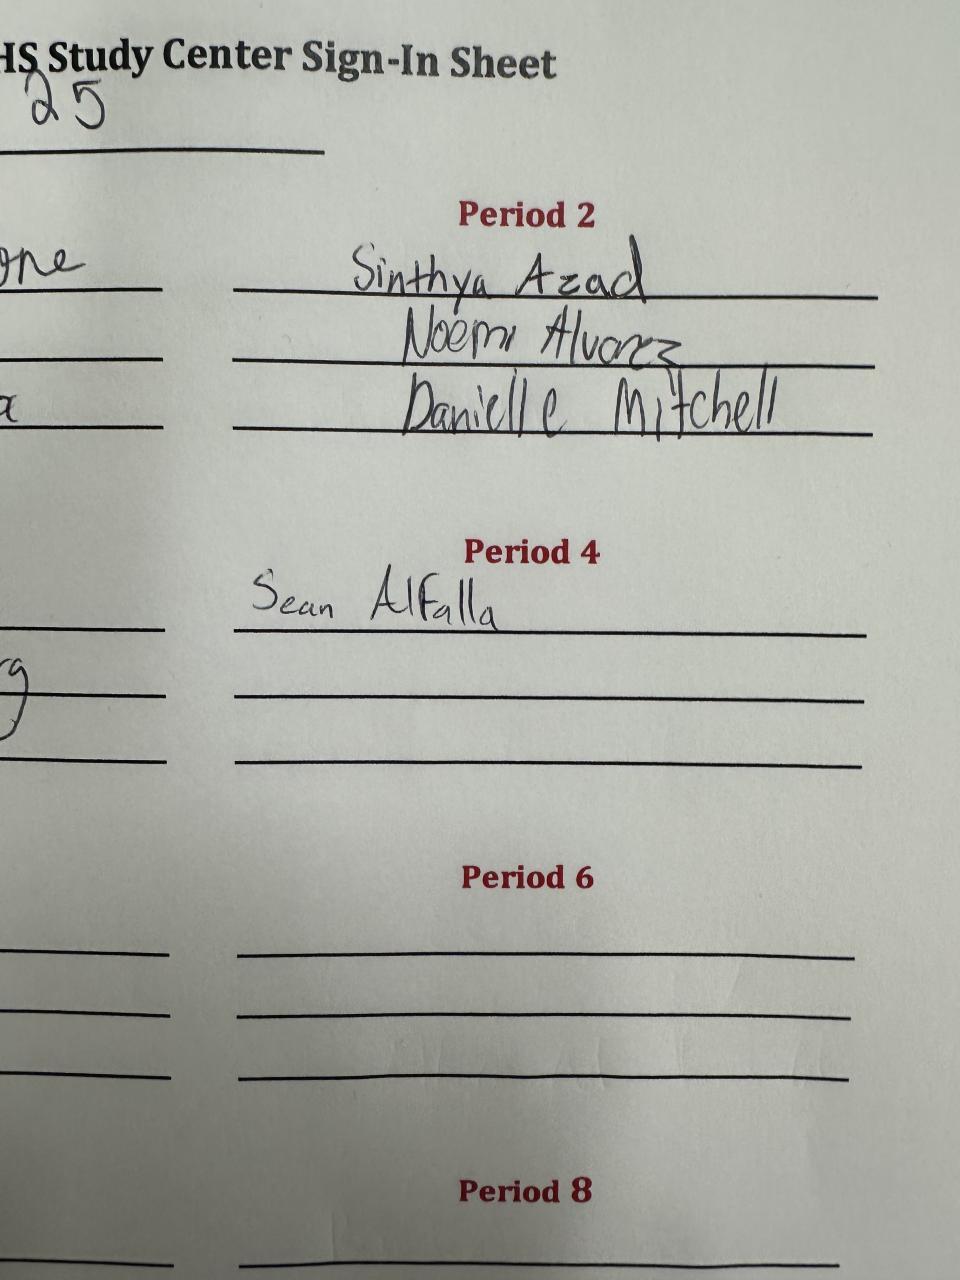 HS Study Center Sign-In Sheet
25
Period 2
one
Sinthya Azad
Noemi Alvarez
Danielle Mitchell
Period 4
Sean AlFalla
Period 6
Period 8